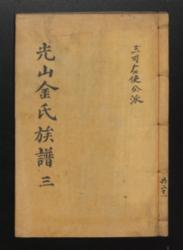 三司右使公派
光山金氏族譜 三